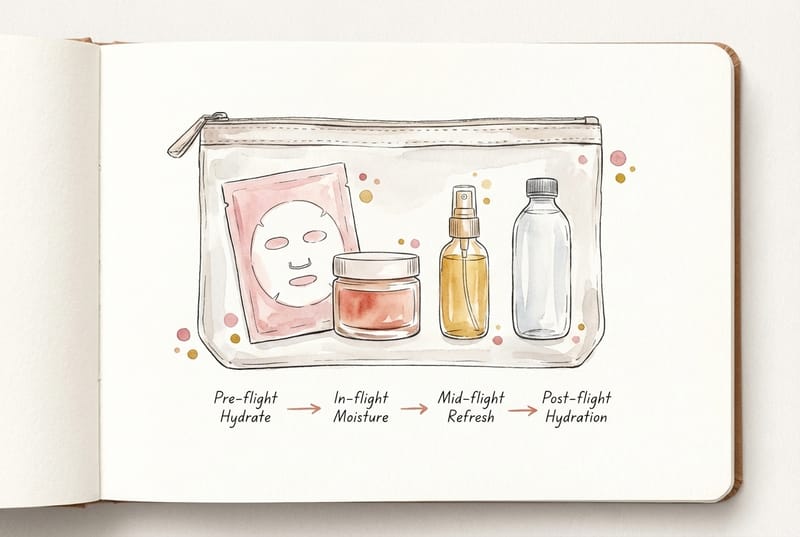 Pre-flight
Hydrate
In-flight
Moisture
Mid-flight
Refresh
Post-flight
Hydration